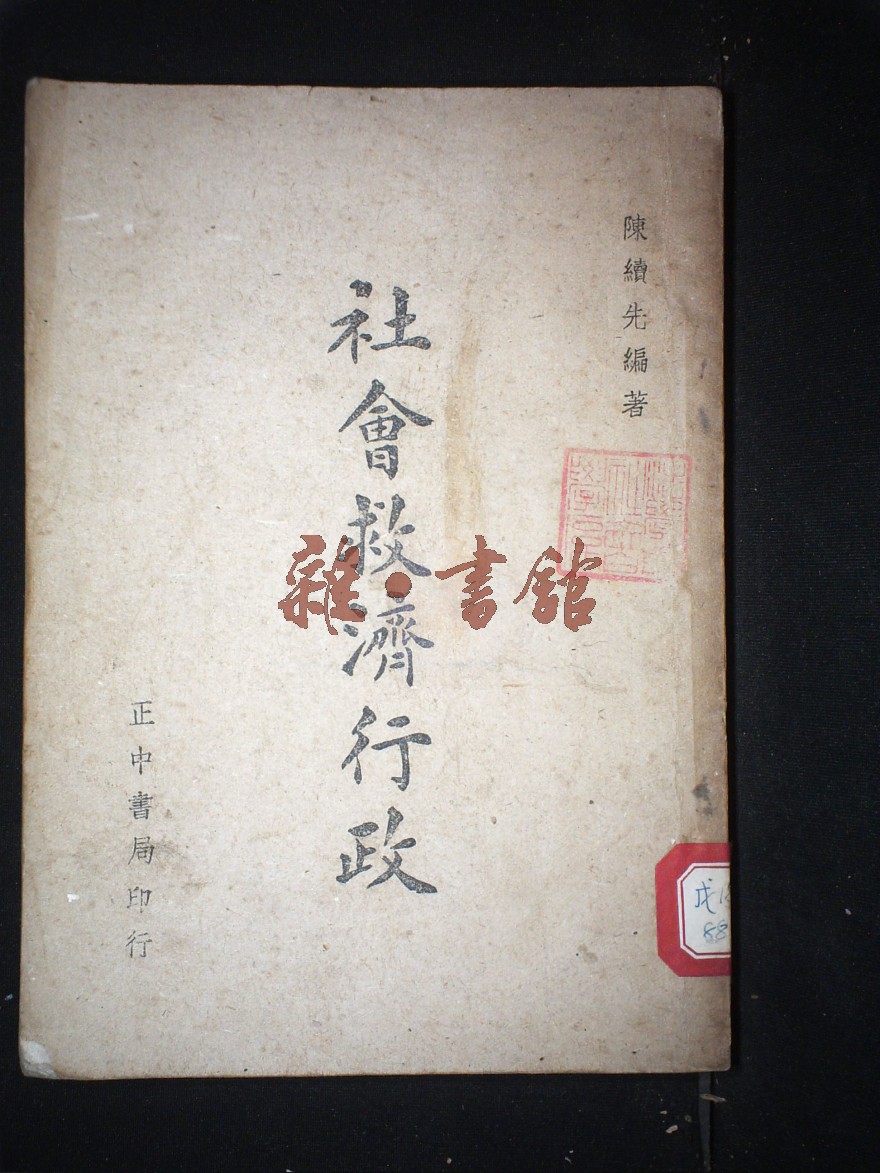 陳續先編著
社會救濟行政
正中書局印行
雜·書館
88